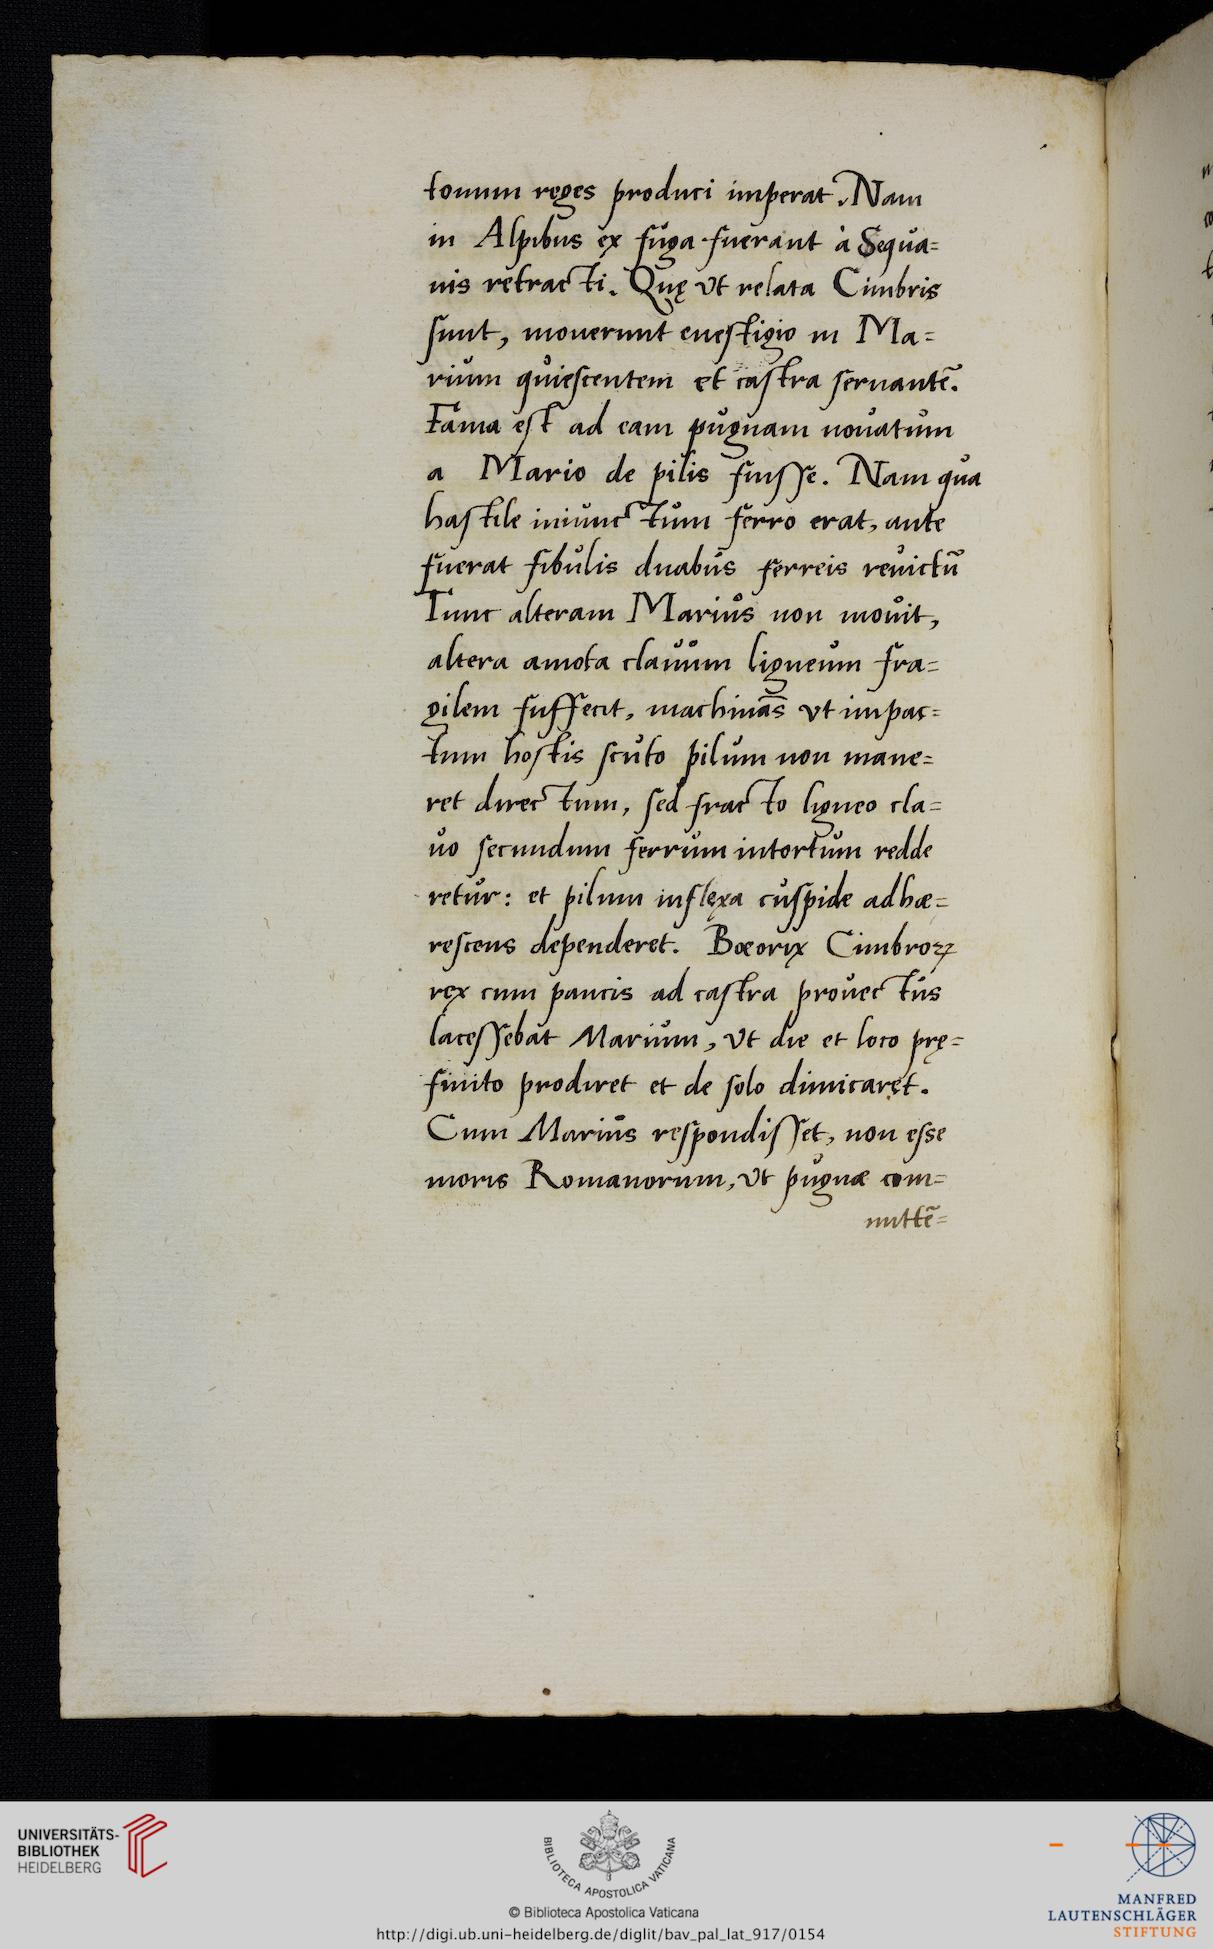 tonum reges produci imperat. Nam
in Alpibus ex fuga fuerant à Sequa=
nis retracti. Quę ut relata Cimbris
sunt, mouerunt euestigio in Ma=
rium quiescentem et castra seruantē.
Fama est ad eam pugnam nouatum
a Mario de pilis fuisse. Nam qua
hastile iniunctum ferro erat, ante
fuerat fibulis duabus ferreis reuictū
Tunc alteram Marius non mouit,
altera amota clauum ligneum fra=
gilem suffecit, machinās ut impac=
tum hostis scuto pilum non mane=
ret directum, sed fracto ligneo cla=
uo secundum ferrum intortum redde
retur: et pilum inflexa cuspide adhæ=
rescens dependeret. Bœorix Cimbroꝝ
rex cum paucis ad castra prouectus
lacessebat Marium, ut die et loco prę=
finito prodiret et de solo dimicaret.
Cum Marius respondisset, non esse
moris Romanorum, ut pugnæ com=
mittē=
UNIVERSITÄTS-
BIBLIOTHEK
HEIDELBERG
BIBLIOTECA APOSTOLICA VATICANA
© Biblioteca Apostolica Vaticana
http://digi.ub.uni-heidelberg.de/diglit/bav_pal_lat_917/0154
MANFRED
LAUTENSCHLÄGER
STIFTUNG